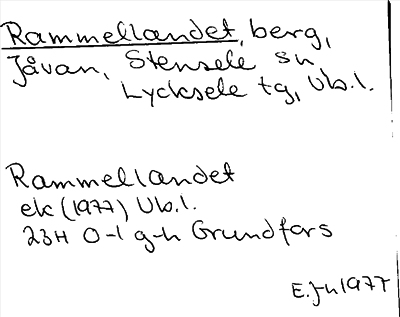 Rammellandet, berg,
Jåvan, Stensele sn,
Lycksele tg, Vb.l.
Rammellandet
ek (1977) Vb.l.
23H 0-1 g-h Grundfors
E.Jn 1977